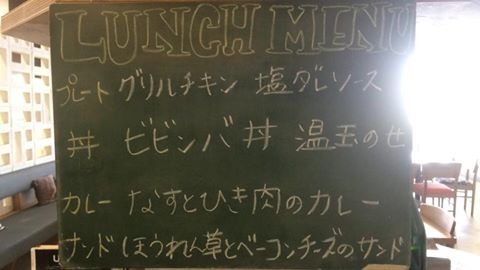 LUNCH MENU
プレート グリルチキン 塩ダレソース
丼 ビビンバ丼 温玉のせ
カレー なすとひき肉のカレー
サンド ほうれん草とベーコンチーズのサンド